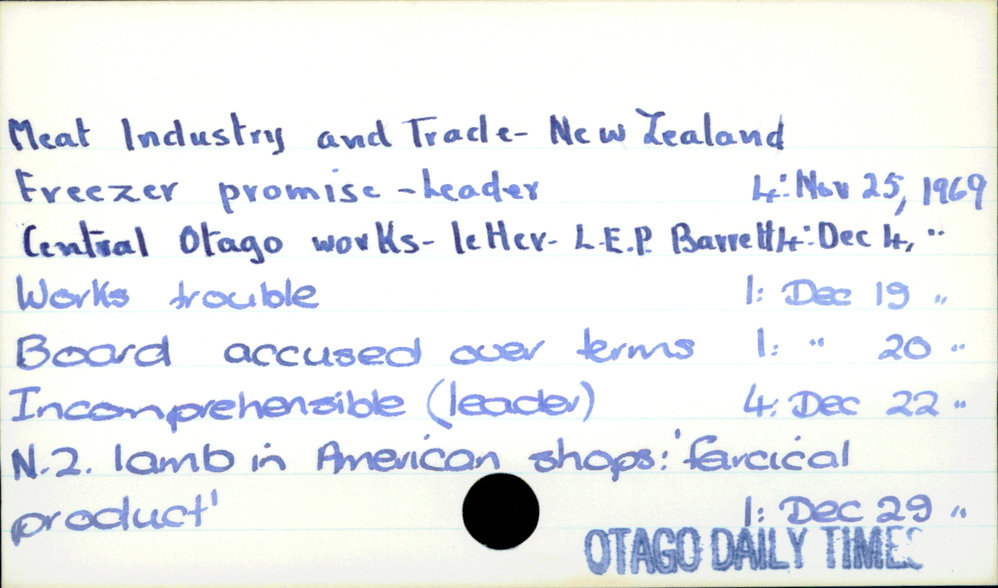 Meat Industry and Trade - New Zealand
Freezer promise - Leader 4: Nov 25, 1969
Central Otago works - letter - L.E.P. Barrett 4: Dec 4, "
Works trouble 1: Dec 19 "
Board accused over terms 1: " 20 "
Incomprehensible (leader) 4: Dec 22 "
N.Z. lamb in American shops: 'farcical
product' 1: Dec 29 "
OTAGO DAILY TIMES